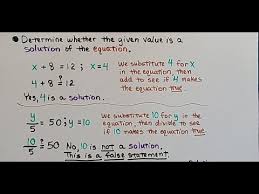 • Determine whether the given value is a
solution of the equation.
x + 8 = 12 ; x = 4
We substitute 4 for x
in the equation, then
add to see if 4 makes
the equation true.
4 + 8 ≟ 12
Yes, 4 is a solution.
y/5 = 50 ; y = 10
We substitute 10 for y in the
equation, then divide to see
if 10 makes the equation true.
10/5 ≟ 50
No, 10 is not a solution.
This is a false statement.